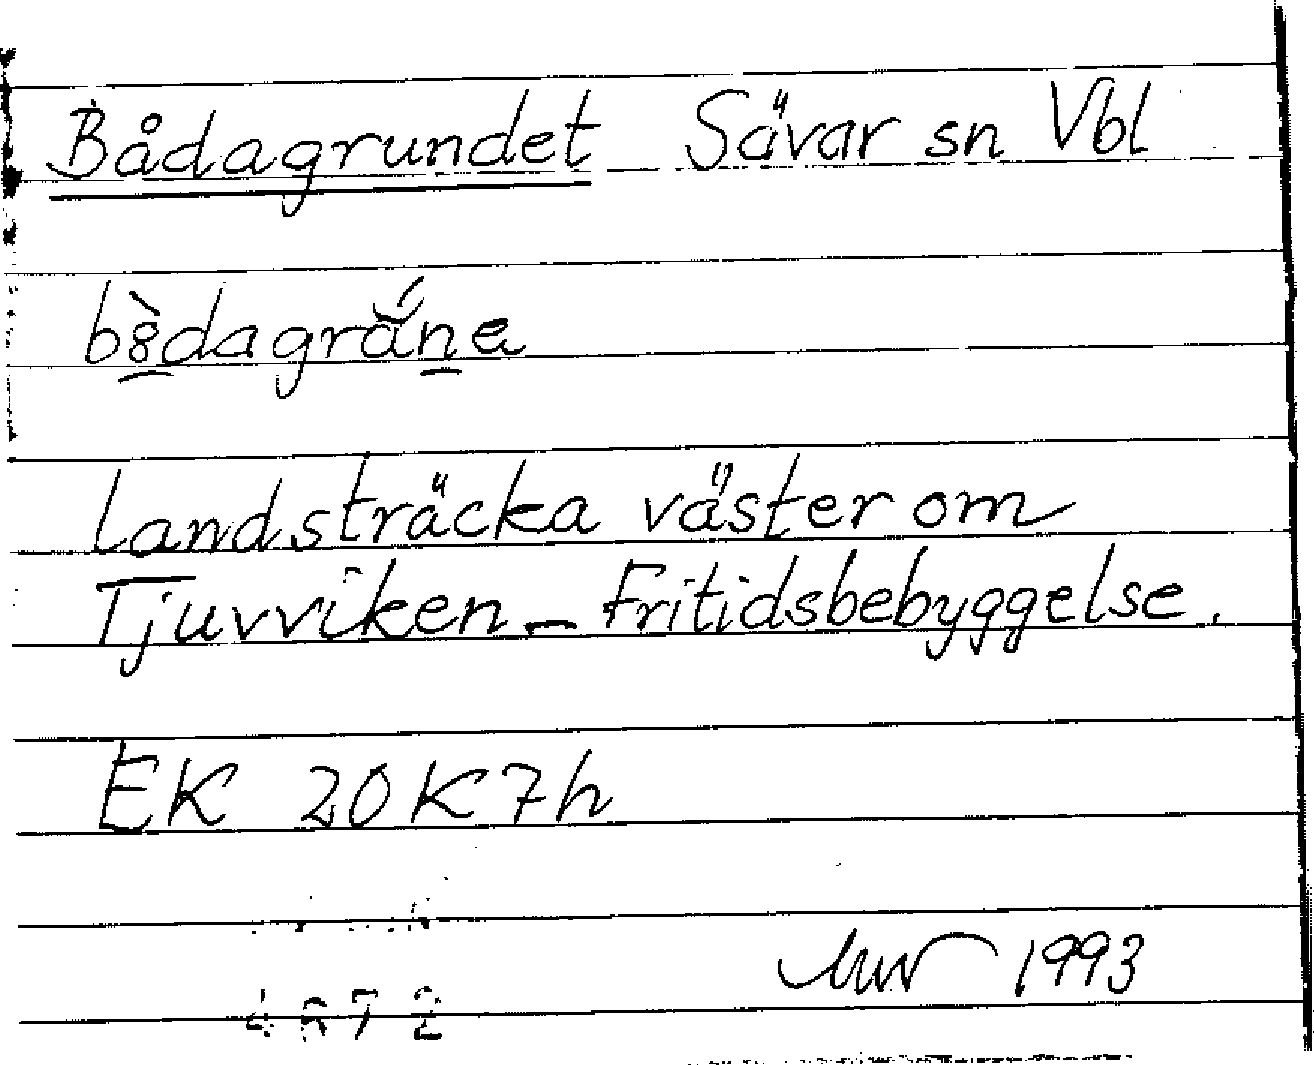 Bådagrundet Sävar sn Vbl
landsträcka väster om
Tjuvviken - Fritidsbebyggelse.
EK 20K7h
1993